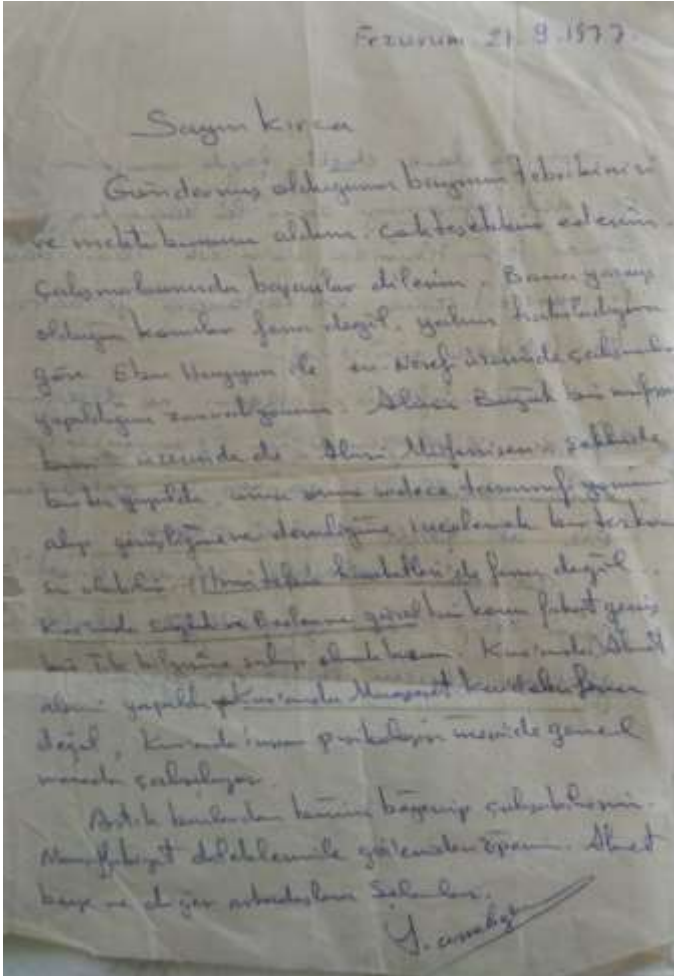 Erzurum 21.9.1977.
Sayın Kırca
Göndermiş olduğunuz bayram tebrikinizi
ve mektubunuzu aldım. çok teşekkür ederim.
Çalışmalarınızda başarılar dilerim. Bana yazmış
olduğun konular fena değil, yalnız hatırladığıma
göre Ebu Hayyan ile en-Nesefi üzerinde çalışmalar
yapıldığını Alûsi Büyük bir
üzerinde de Alûsi şeklinde
bir tez yapıldı, sadece tasavvuf yönünü
alıp genişliğine ve derinliğine incelemek bir tez konu
su olabilir. de fena değil.
Kur'anda sağlık ve Beslenme güzel bir konu fakat geniş
bir Tıb bilgisine sahip olmak lazım. Kur'anda
yapıldı. Kur'anda fena
değil, Kur'anda insan psikolojisi üzerinde genel
manada çalışılıyor.
Artık bunlardan birini beğenip çalışabilirsin.
Muvaffakiyet dileklerimle gözlerinden öperim. Ahmet
beye ve diğer arkadaşlara Selamlar.